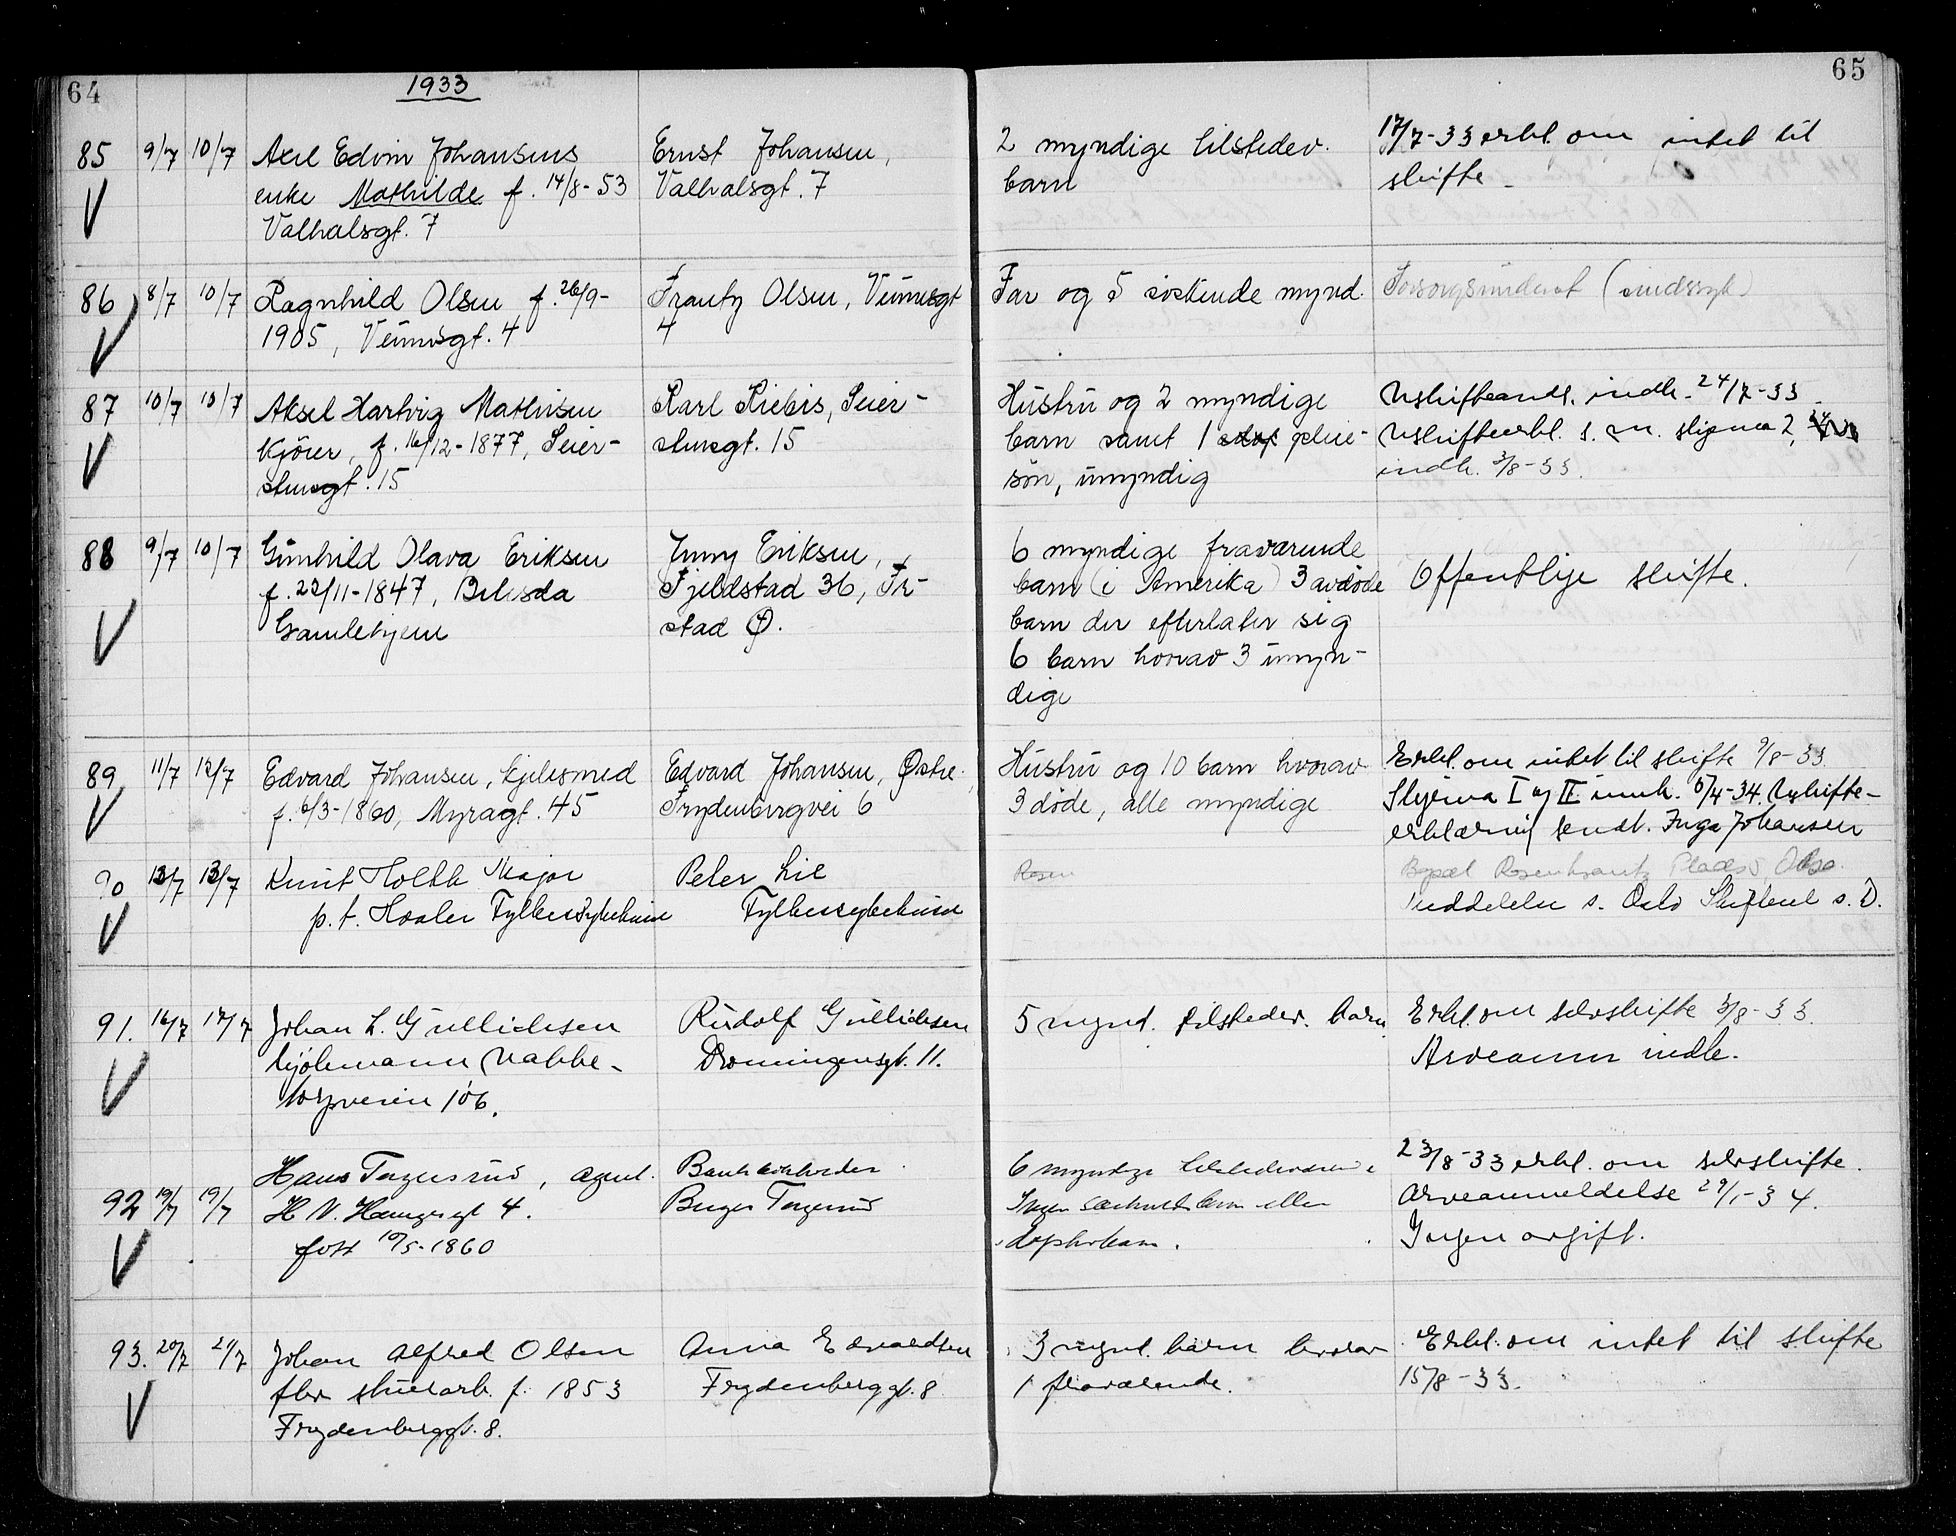 64
1933
65
85 9/7 10/7 Axel Edvin Johansens Ernst Johansen, 2 myndige tilstedev. 17/7-33 erkl. om intet til
enke Mathilde f. 14/8-53 Valhalsgt. 7 barn skifte
Valhalsgt. 7
86 8/7 10/7 Ragnhild Olsen f. 26/9- Frantz Olsen, Veumsgt Far og 5 söskende mynd. Forsorgsunderst (sindssyk)
1905, Veumsgt. 4 4
87 10/7 10/7 Aksel Hartvig Mathisen Karl Kiebis, Seier- Hustru og 2 myndige Uskifteand. indk. 24/7-33
kjörer, f. 16/12-1877, Seier- stensgt. 15 barn samt 1 pleie- Uskifteerkl. s. m. skjema 2,
stensgt. 15 sön, umyndig indk. 3/8-33.
88 9/7 10/7 Gunhild Olava Eriksen Jenny Eriksen, 6 myndige fraværende Offentlige skifte.
f. 22/11-1847, Betesda Fjeldstad 36, Fr- barn (i Amerika) 3 avdöde
Gamlebyen stad Ø. barn der efterlater sig
6 barn hvorav 3 umyn-
dige
89 11/7 12/7 Edvard Johansen, kjelesmed Edvard Johansen, Østre Hustru og 10 barn hvorav Erkl. om intet til skifte 9/8-33
f. 6/3-1860, Myragt. 45 Frydenbergvei 6 3 døde, alle myndige Skjema I og II innk. 5/4-34. Uskifte-
erklæring sendt. Inga Johansen
90 13/7 13/7 Knut Holth Major Peter Lie Rosen Bopæl Rosenkrantz Plads 5 Oslo.
p.t. Hvaler Fylkessykehuse Fylkessykehuset Meddelelse s. Oslo Skifteret s. D.
91. 16/7 17/7 Johan L. Gullichsen Rudolf Gullichsen 5 mynd. tilstedev. barn Erkl. om selvskifte 3/8-33.
kjølemann Nabbe- Dronningensgt. 11. Arveanm indk.
torpveien 106.
92 19/7 19/7 Hans Torgersrud, agent. Bankbokholder 6 myndige tilstedeværende 23/8-33 erkl. om selvskifte.
H. N. Haugesgt 4. Birger Torgersrud Ingen særkulsbarn eller Arveanmeldelse 29/1-34.
født 10/5-1860 adoptivbarn. Ingen avgift.
93. 20/7 21/7 Johan Alfred Olsen Anna Edvardsen 3 mynd. barn hvorav Erkl. om intet til skifte
fhv stuerarb. f. 1853 Frydenberggt. 8 1 fraværende. 15/8-33.
Frydenberggt. 8.